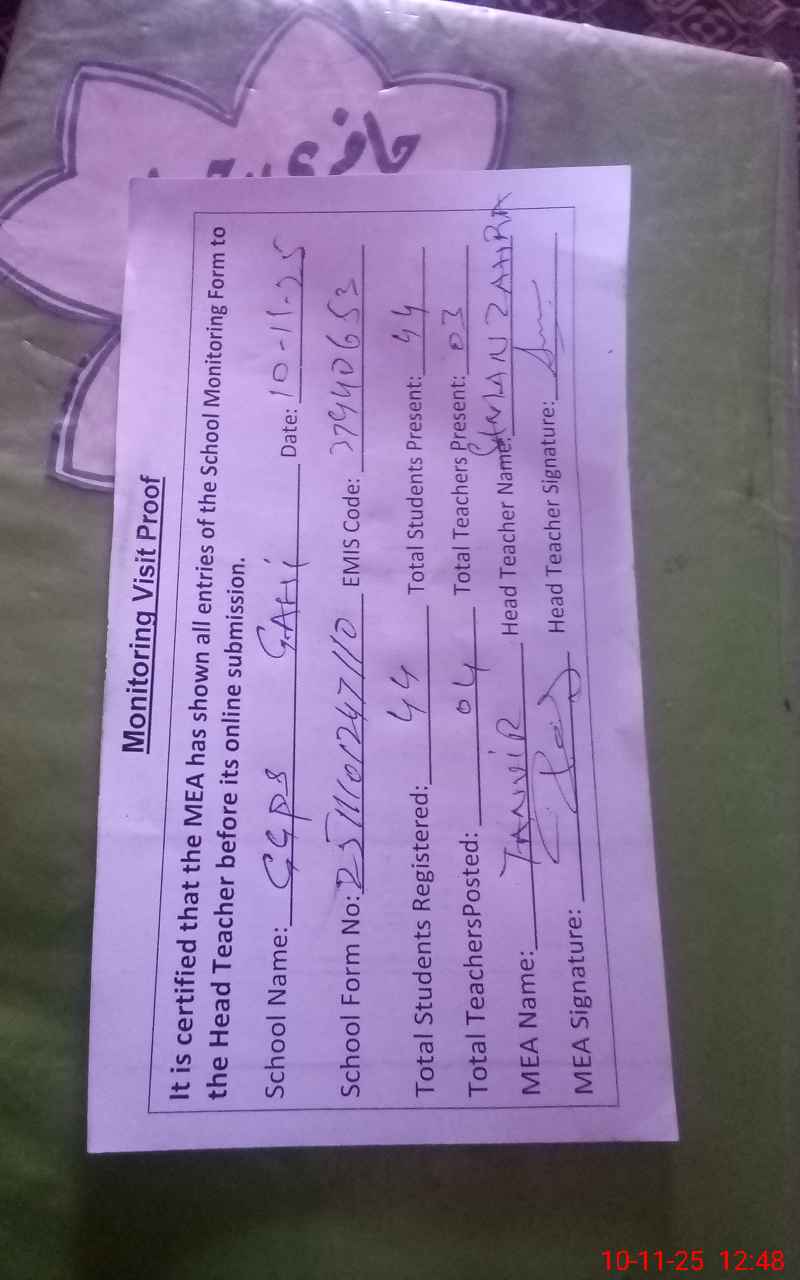 حاضری
Monitoring Visit Proof
It is certified that the MEA has shown all entries of the School Monitoring Form to
the Head Teacher before its online submission.
School Name: GGPS GAHI Date: 10-11-25
School Form No: EMIS Code: 37440653
Total Students Registered: 44 Total Students Present: 44
Total TeachersPosted: 04 Total Teachers Present: 03
MEA Name: TANVIR Head Teacher Name: ZAHRA
MEA Signature: Head Teacher Signature:
10-11-25 12:48